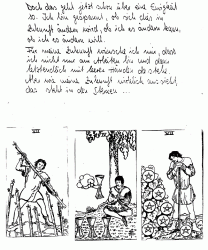 Doch das geht jetzt schon über eine Ewigkeit
so. Ich bin gespannt, ob sich das in
Zukunft ändern wird, ob ich es ändern kann,
ob ich es ändern will.
Für meine Zukunft wünsche ich mir, dass
ich nicht nur am Arbeiten bin und dann
letztendlich mit leeren Händen da stehe.
Aber wie meine Zukunft wirklich aussieht
das steht in den Sternen ...
VII VII VII